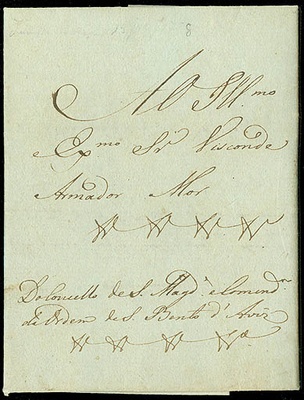 8
Ao Ill.mo
Ex.mo Sr. Visconde
Armador Mor
Do Concelho de S. Mag.de e Comend.or
da Orden de S. Bento d'Aviz